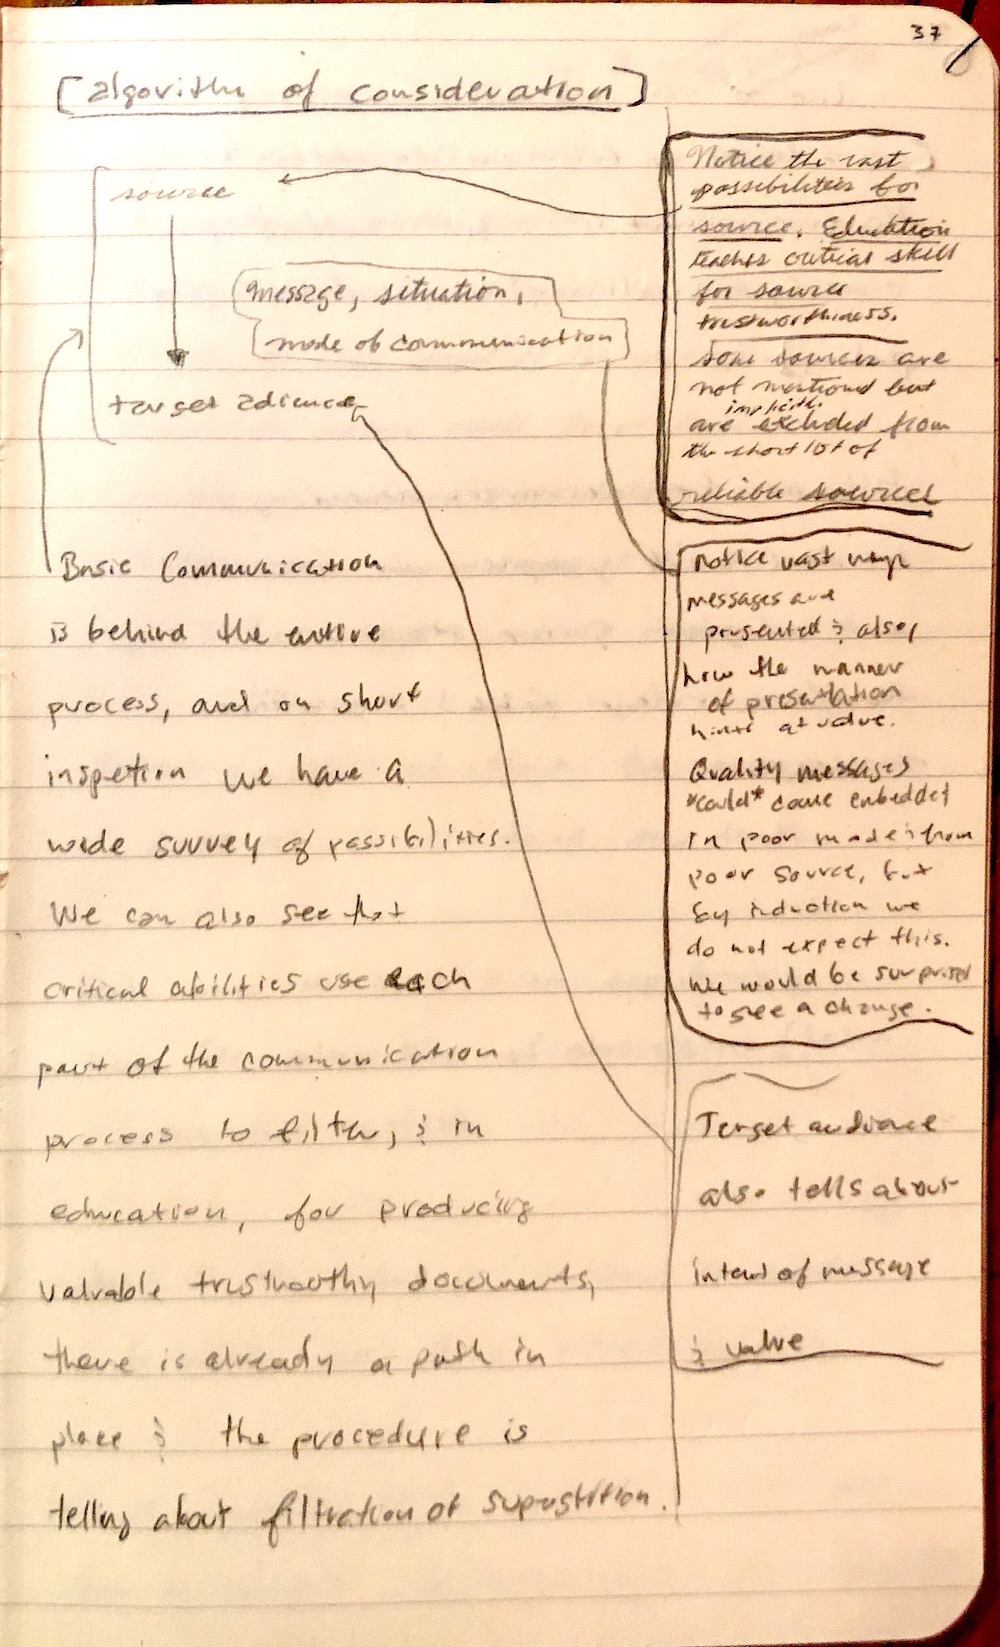 37
[algorithm of consideration]
source
message, situation,
mode of communication
target adience
Notice the vast
possibilities for
source. Education
teaches critical skill
for source
trustworthiness.
some sources are
not mentioned but
implicit.
are excluded from
the short list of
reliable sources
Notice vast ways
messages are
presented & also,
how the manner
of presentation
hints at value.
Quality messages
*could* come embedded
in poor mode & from
poor source, but
by induction we
do not expect this.
We would be surprised
to see a change.
Target audience
also tells about
intent of message
& value
Basic Communication
is behind the entire
process, and on short
inspetion we have a
wide survey of possibilities.
We can also see that
critical abilities use each
part of the communication
process to filter, & in
education, for producing
valuable trustworthy documents,
there is already a path in
place & the procedure is
telling about filtration of superstition.